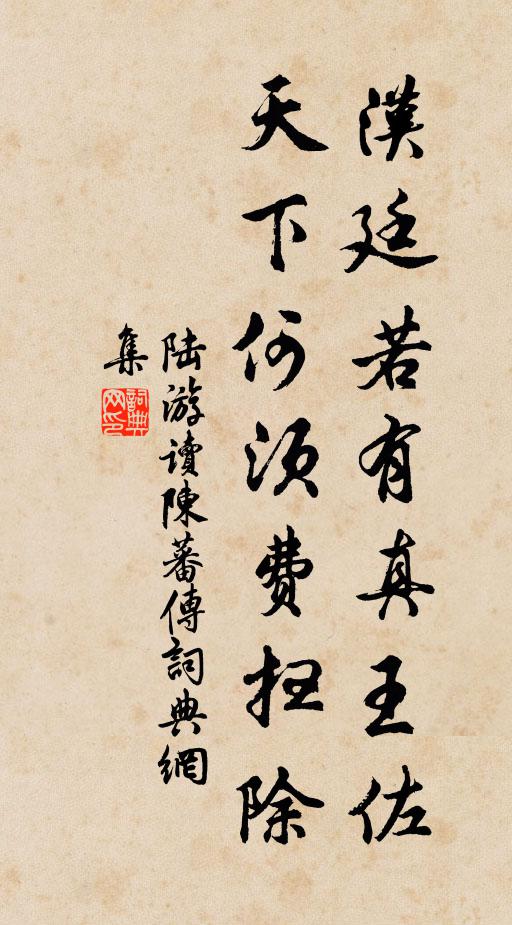 漢廷若有真王佐
天下何須費扫除
陸游讀陳蕃傳詞典網
集
詞典
网印